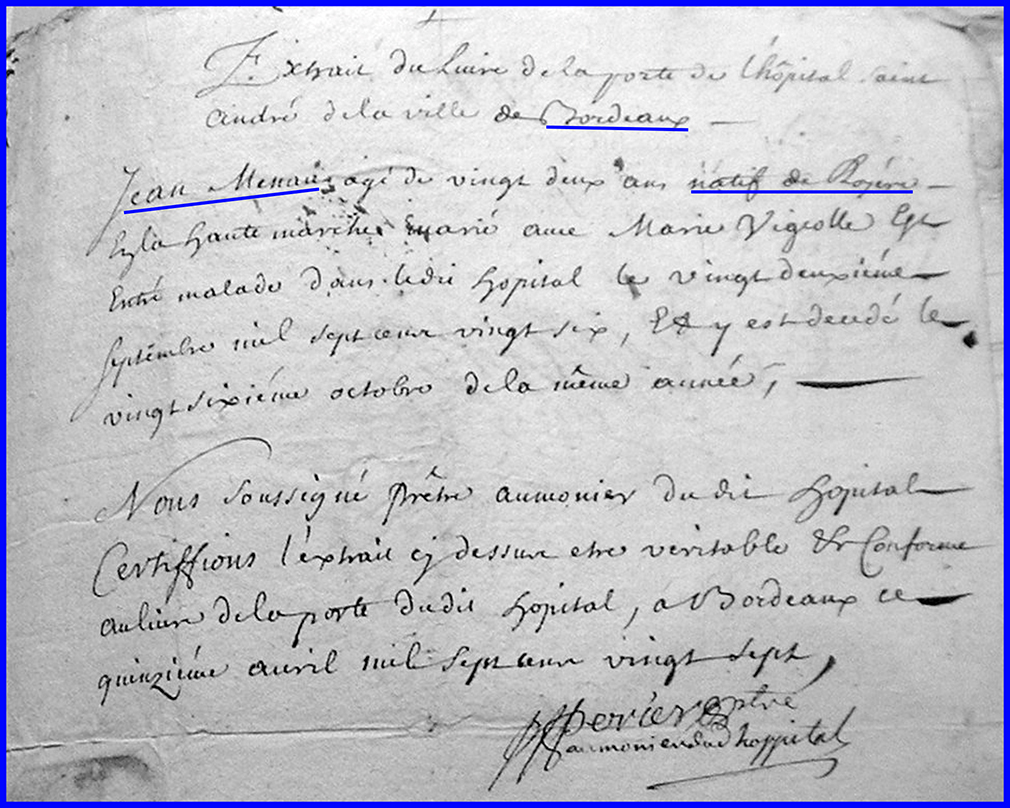 Extrait du Livre de la porte de l'hôpital saint
andré de la ville de Bordeaux —
Jean Menau agé de vingt deux ans natif de Rozére —
En la haute marche marié avec Marie Vigeolle Est
Entré malade dans ledit hopital le vingt deuxiéme
septembre mil sept cent vingt six, Et y est decedé le
vingt sixiéme octobre de la même année,
Nous soussigné prêtre aumonier du dit hopital
Certiffions l'éxtrait cy dessus etre veritable Et Conforme
au livre de la porte du dit hopital, a Bordeaux ce
quinziéme avril mil sept cent vingt sept,
perier ptre
aumonier dud hoppital